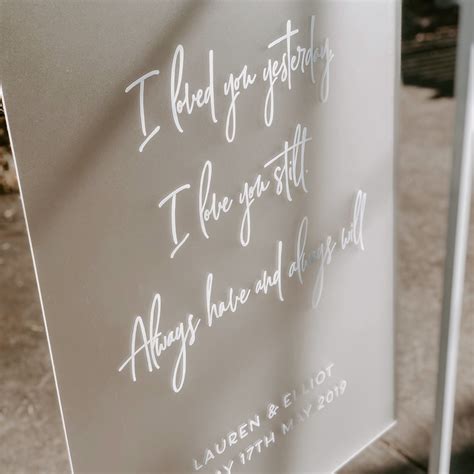 I loved you yesterday
I love you still.
Always have and always will
LAUREN & ELLIOT
17TH MAY 2019